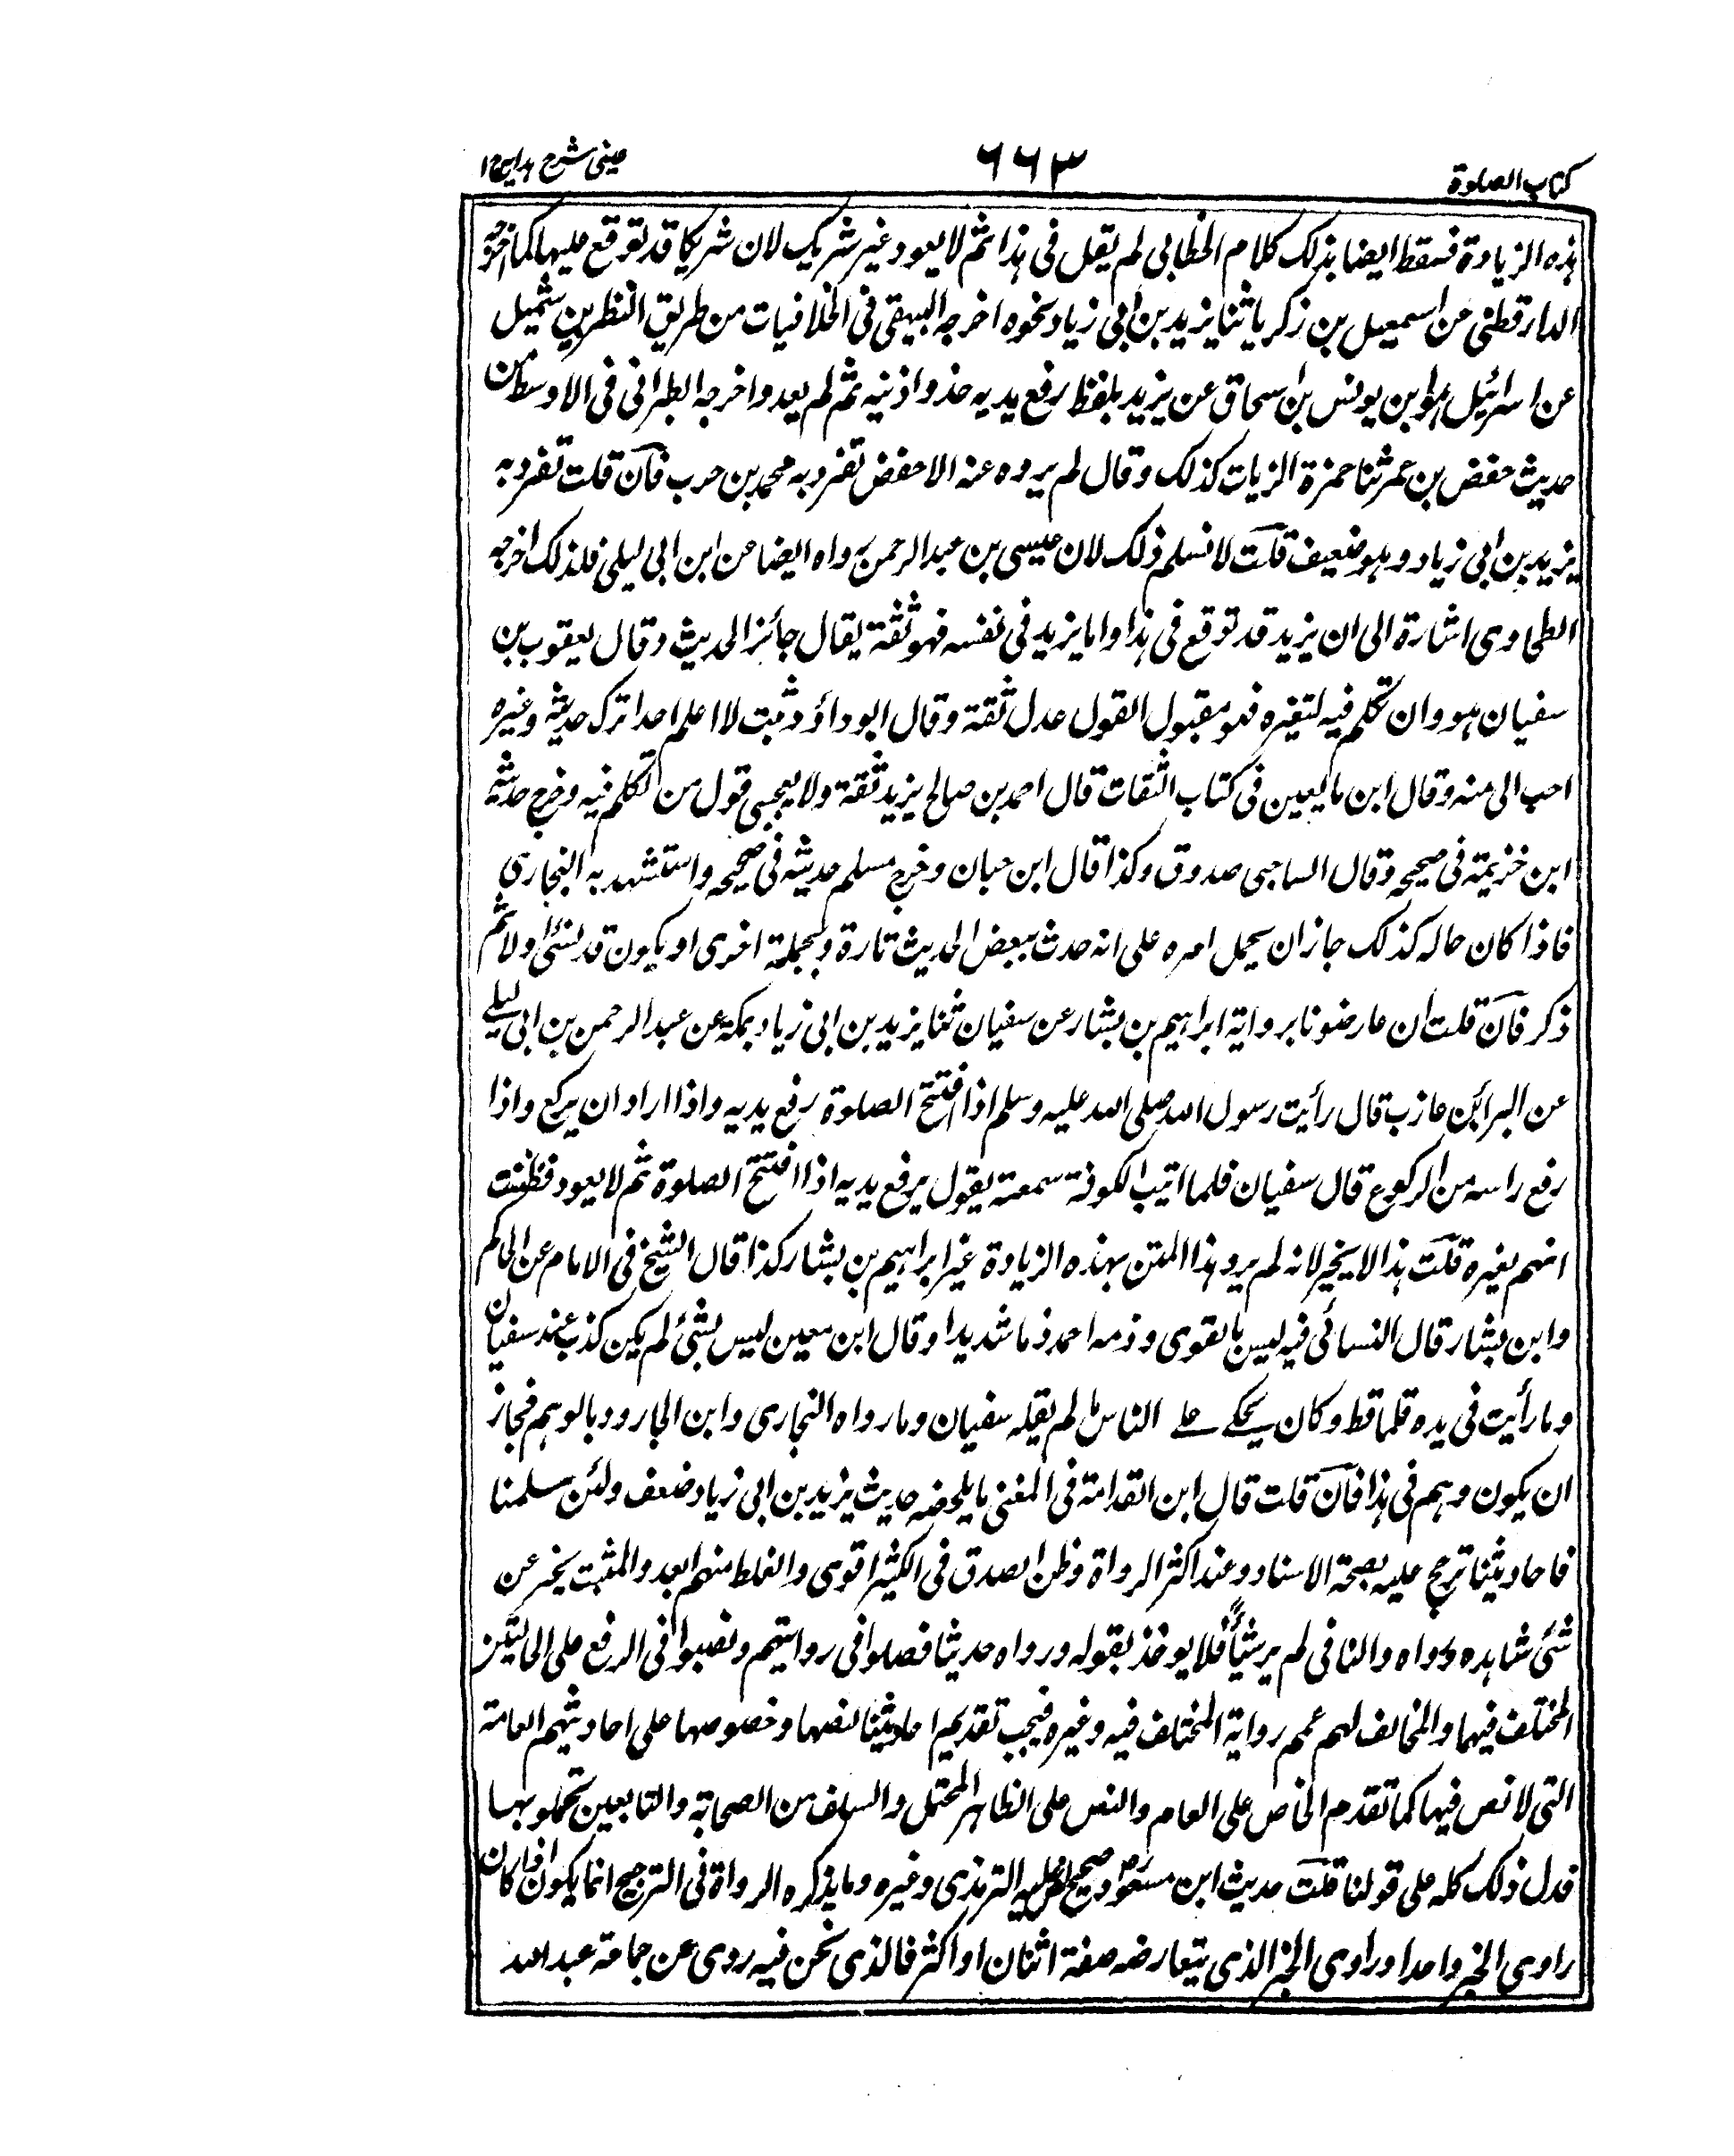 كتاب الصلوة
٦٦٣
عينى شرح هدايه ج ١
هذه الزيادة فسقط ايضا بذلك كلام الخطابى لم يقل فى هذا ثم لا يعود غير شريك لان شريكا قد توقع عليها كما اخرجه
الدارقطنى عن اسمعيل بن زكريا ثنا يزيد بن ابى زياد نحوه اخرجه البيهقى فى الخلافيات من طريق النظر بن شميل
عن اسرائيل هو ابن يونس بن اسحاق عن يزيد بلفظ رفع يديه حذو اذنيه ثم لم يعد واخرجه الطبرانى فى الاوسط من
حديث حفص بن عمر ثنا حمزة الزيات كذلك وقال لم يروه عنه الا حفص تفرد به محمد بن حرب فان قلت تفرد به
يزيد بن ابى زياد وهو ضعيف قلت لا نسلم ذلك لان عيسى بن عبد الرحمن رواه ايضا عن ابن ابى ليلى فلذلك اخرجه
الطحاوى اشارة الى ان يزيد قد توقع فى هذا واما يزيد فى نفسه فهو ثقة يقال جائز الحديث وقال يعقوب بن
سفيان هو وان تكلم فيه لتغيره فهو مقبول القول عدل ثقة وقال ابو داؤد ثبت لا اعلم احدا ترك حديثه وغيره
احب الى منه وقال ابن ماليعين فى كتاب الثقات قال احمد بن صالح يزيد ثقة ولا يعجبى قول من تكلم فيه وخرج حديثه
ابن خزيمة فى صحيحه وقال الساجى صدوق وكذا قال ابن حبان وخرج مسلم حديثه فى صحيحه واستشهد به البخارى
فاذا كان حاله كذلك جاز ان يحمل امره على انه حدث ببعض الحديث تارة وبجملة اخرى او يكون قد نسئ اولا ثم
ذكر فان قلت ان عارضونا برواية ابراهيم بن بشار عن سفيان ثنا يزيد بن ابى زياد بمكة عن عبد الرحمن بن ابى ليلے
عن البرأ بن عازب قال رأيت رسول الله صلى الله عليه وسلم اذا افتتح الصلوة رفع يديه واذا اراد ان يركع واذا
رفع راسه من الركوع قال سفيان فلما اتيت الكوفة سمعته يقول يرفع يديه اذا افتتح الصلوة ثم لا يعود فظننت
انهم بغيره قلت هذا لا يخير لانه لم يرو هذا المتن بهذه الزيادة غير ابراهيم بن بشار كذا قال الشيخ فى الامام عن الحاكم
وابن بشار قال النسائى فيه ليس بالقوى وذمه احمد ذما شديدا وقال ابن معين ليس بشئ لم يكن كذب عند سفيان
وما رأيت فى يده قلما قط وكان يحكے علے الناس ما لم يقله سفيان وما رواه البخارى وابن الجارود بالوهم فجاز
ان يكون وهم فى هذا فان قلت قال ابن القدامة فى المغنى ما يلحضه حديث يزيد بن ابى زياد ضعف ولئن سلمنا
فاحاديثنا ترجح عليه بصحة الاسناد وعند اكثر الرواة وظن الصدق فى الكثير اقوى والغلط منهم ابعد والمثبت يخبر عن
شئ شاهده ورواه والنافى لم ير شيأ فلا يوخذ بقوله ورواه حديثا فصلوا فى روايتهم ونصبوا فى الرفع على الحالتين
المختلف فيهما والمخالف لهم عمم رواية المختلف فيه وغيره فيجب تقديم احاديثنا لنصها وخصوصها على احاديثهم العامة
التى لا نص فيها كما تقدم الخاص على العام والنص على الظاهر المحتمل والسلف من الصحابة والتابعين تحملو بها
فدل ذلك كله على قولنا قلت حديث ابن مسعود رض صحيح نص عليه الترمذى وغيره وما يذكره الرواة فى الترجيح انما يكون اذا كان
راوى الخبر واحدا وراوى الخبر الذى يتعارضه صفة اثنان او اكثر فالذى نحن فيه روى عن جماعة عبد الله